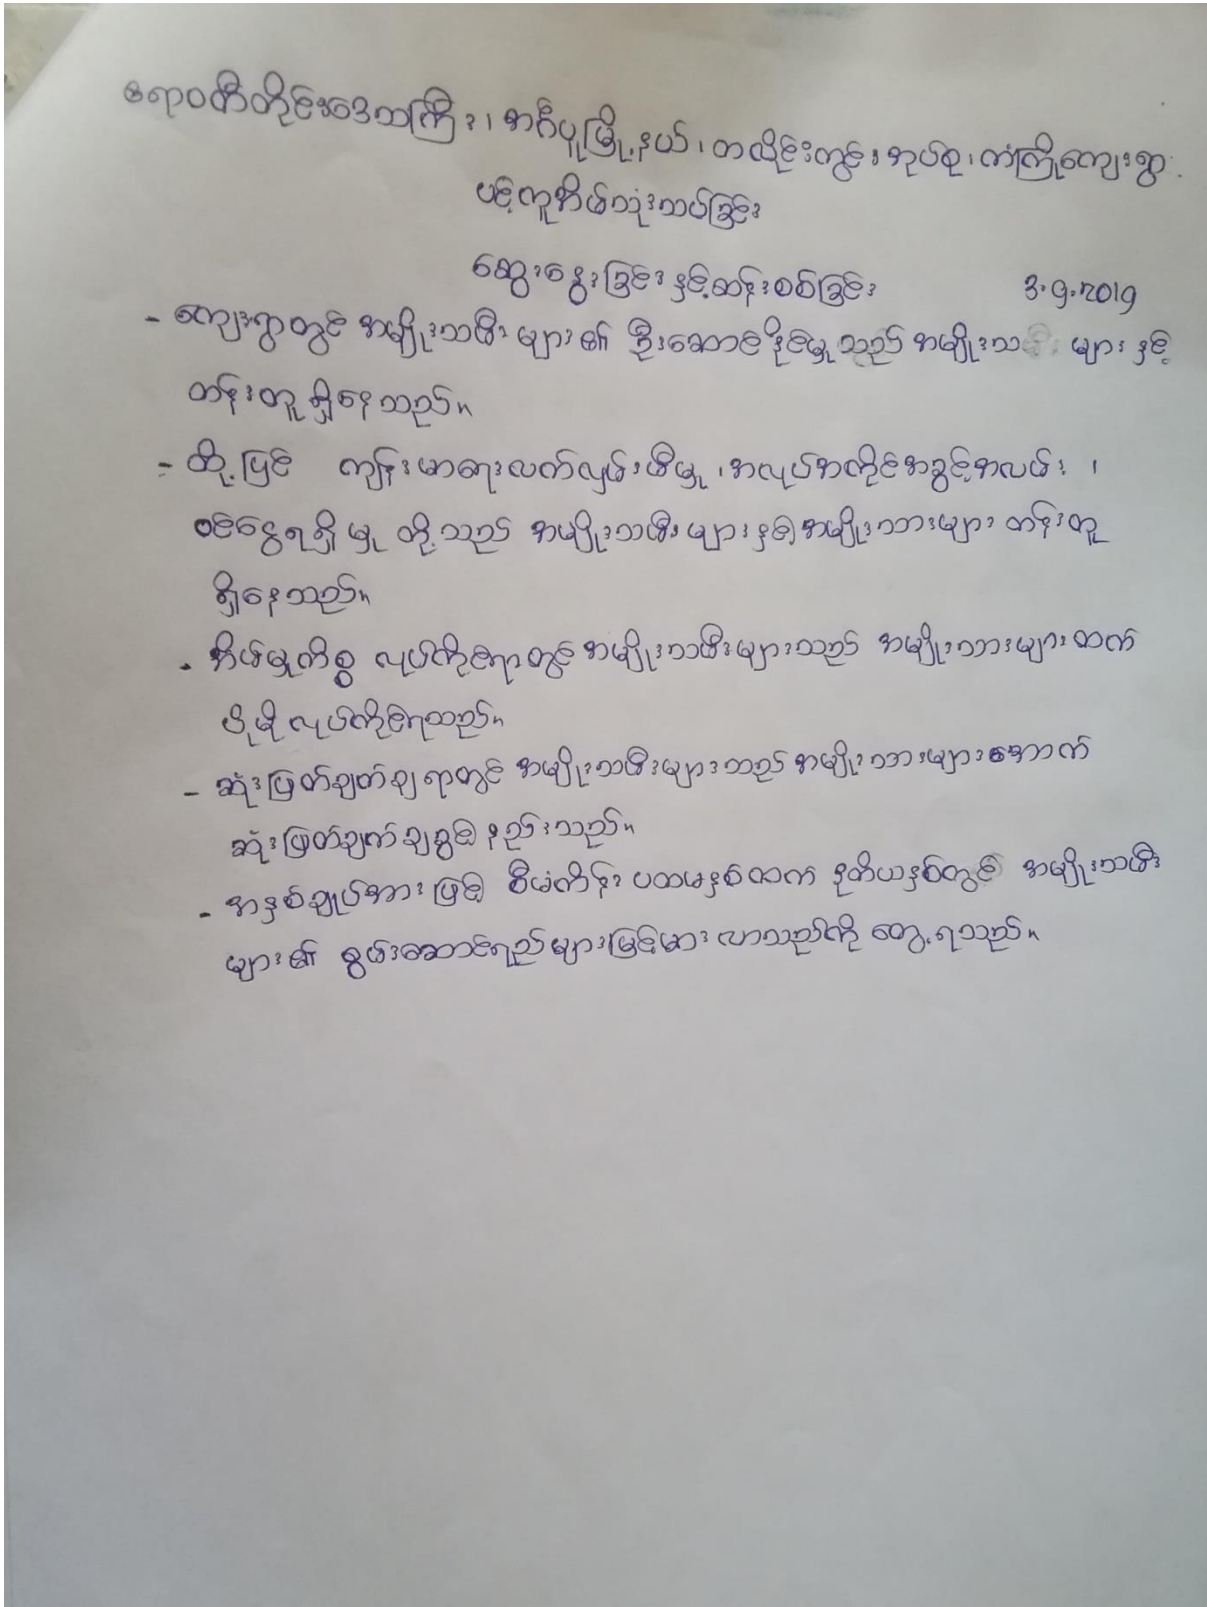 ဧရာဝတီတိုင်းဒေသကြီး၊ အင်္ဂပူမြို့နယ်၊ တလိုင်းတွင်းအုပ်စု၊ ကံကြိုကျေးရွာ
ပင့်ကူအိမ်သုံးသပ်ခြင်း
ဆွေးနွေးခြင်းနှင့်ဆန်းစစ်ခြင်း 3.9.2019
- ကျေးရွာတွင် အမျိုးသမီးများ၏ ဦးဆောင်နိုင်မှုသည် အမျိုးသမီးများနှင့်
တန်းတူရှိနေသည်။
- ထို့ပြင် ကျန်းမာရေးလက်လှမ်းမီမှု၊ အလုပ်အကိုင်အခွင့်အလမ်း၊
ဝင်ငွေရရှိမှု တို့သည် အမျိုးသမီးများနှင့်အမျိုးသားများ တန်းတူ
ရှိနေသည်။
- အိမ်မှုကိစ္စ လုပ်ကိုင်ရာတွင် အမျိုးသမီးများသည် အမျိုးသားများထက်
ပိုမိုလုပ်ကိုင်ရသည်။
- ဆုံးဖြတ်ချက်ချရာတွင် အမျိုးသမီးများသည် အမျိုးသားများအောက်
ဆုံးဖြတ်ချက်ချခွင့်နည်းသည်။
- အနှစ်ချုပ်အားဖြင့် စီမံကိန်းပထမနှစ်ထက် ဒုတိယနှစ်တွင် အမျိုးသမီး
များ၏ စွမ်းဆောင်ရည်များမြင့်မားလာသည်ကို တွေ့ရသည်။